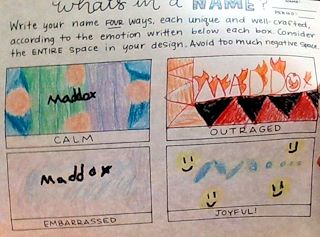 What's in a NAME?
Write your name FOUR ways, each unique and well-crafted,
according to the emotion written below each box. Consider
the ENTIRE space in your design. Avoid too much negative space.
Maddox
MADDOX
CALM
OUTRAGED
Maddox
Maddox
EMBARRASSED
JOYFUL!